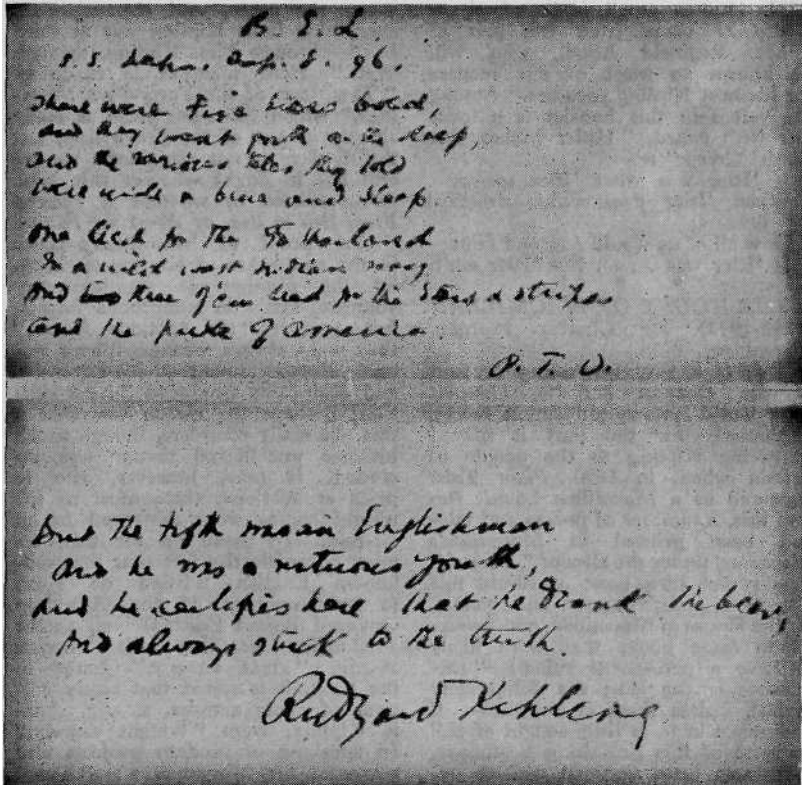 B. E. L.
S. S. Lahn. Sep. 5. 96.
There were five liars bold,
And they went forth on the deep,
And the various tales they told
Were wide and and steep.
One lied for the Fatherland
In a wild west Indian way
And three of 'em lied for the Stars & stripes
And the of America.
P. T. O.
But the fifth was an Englishman
And he was a virtuous youth,
And he certifies here that he drank the beer,
And always stuck to the truth.
Rudyard Kipling